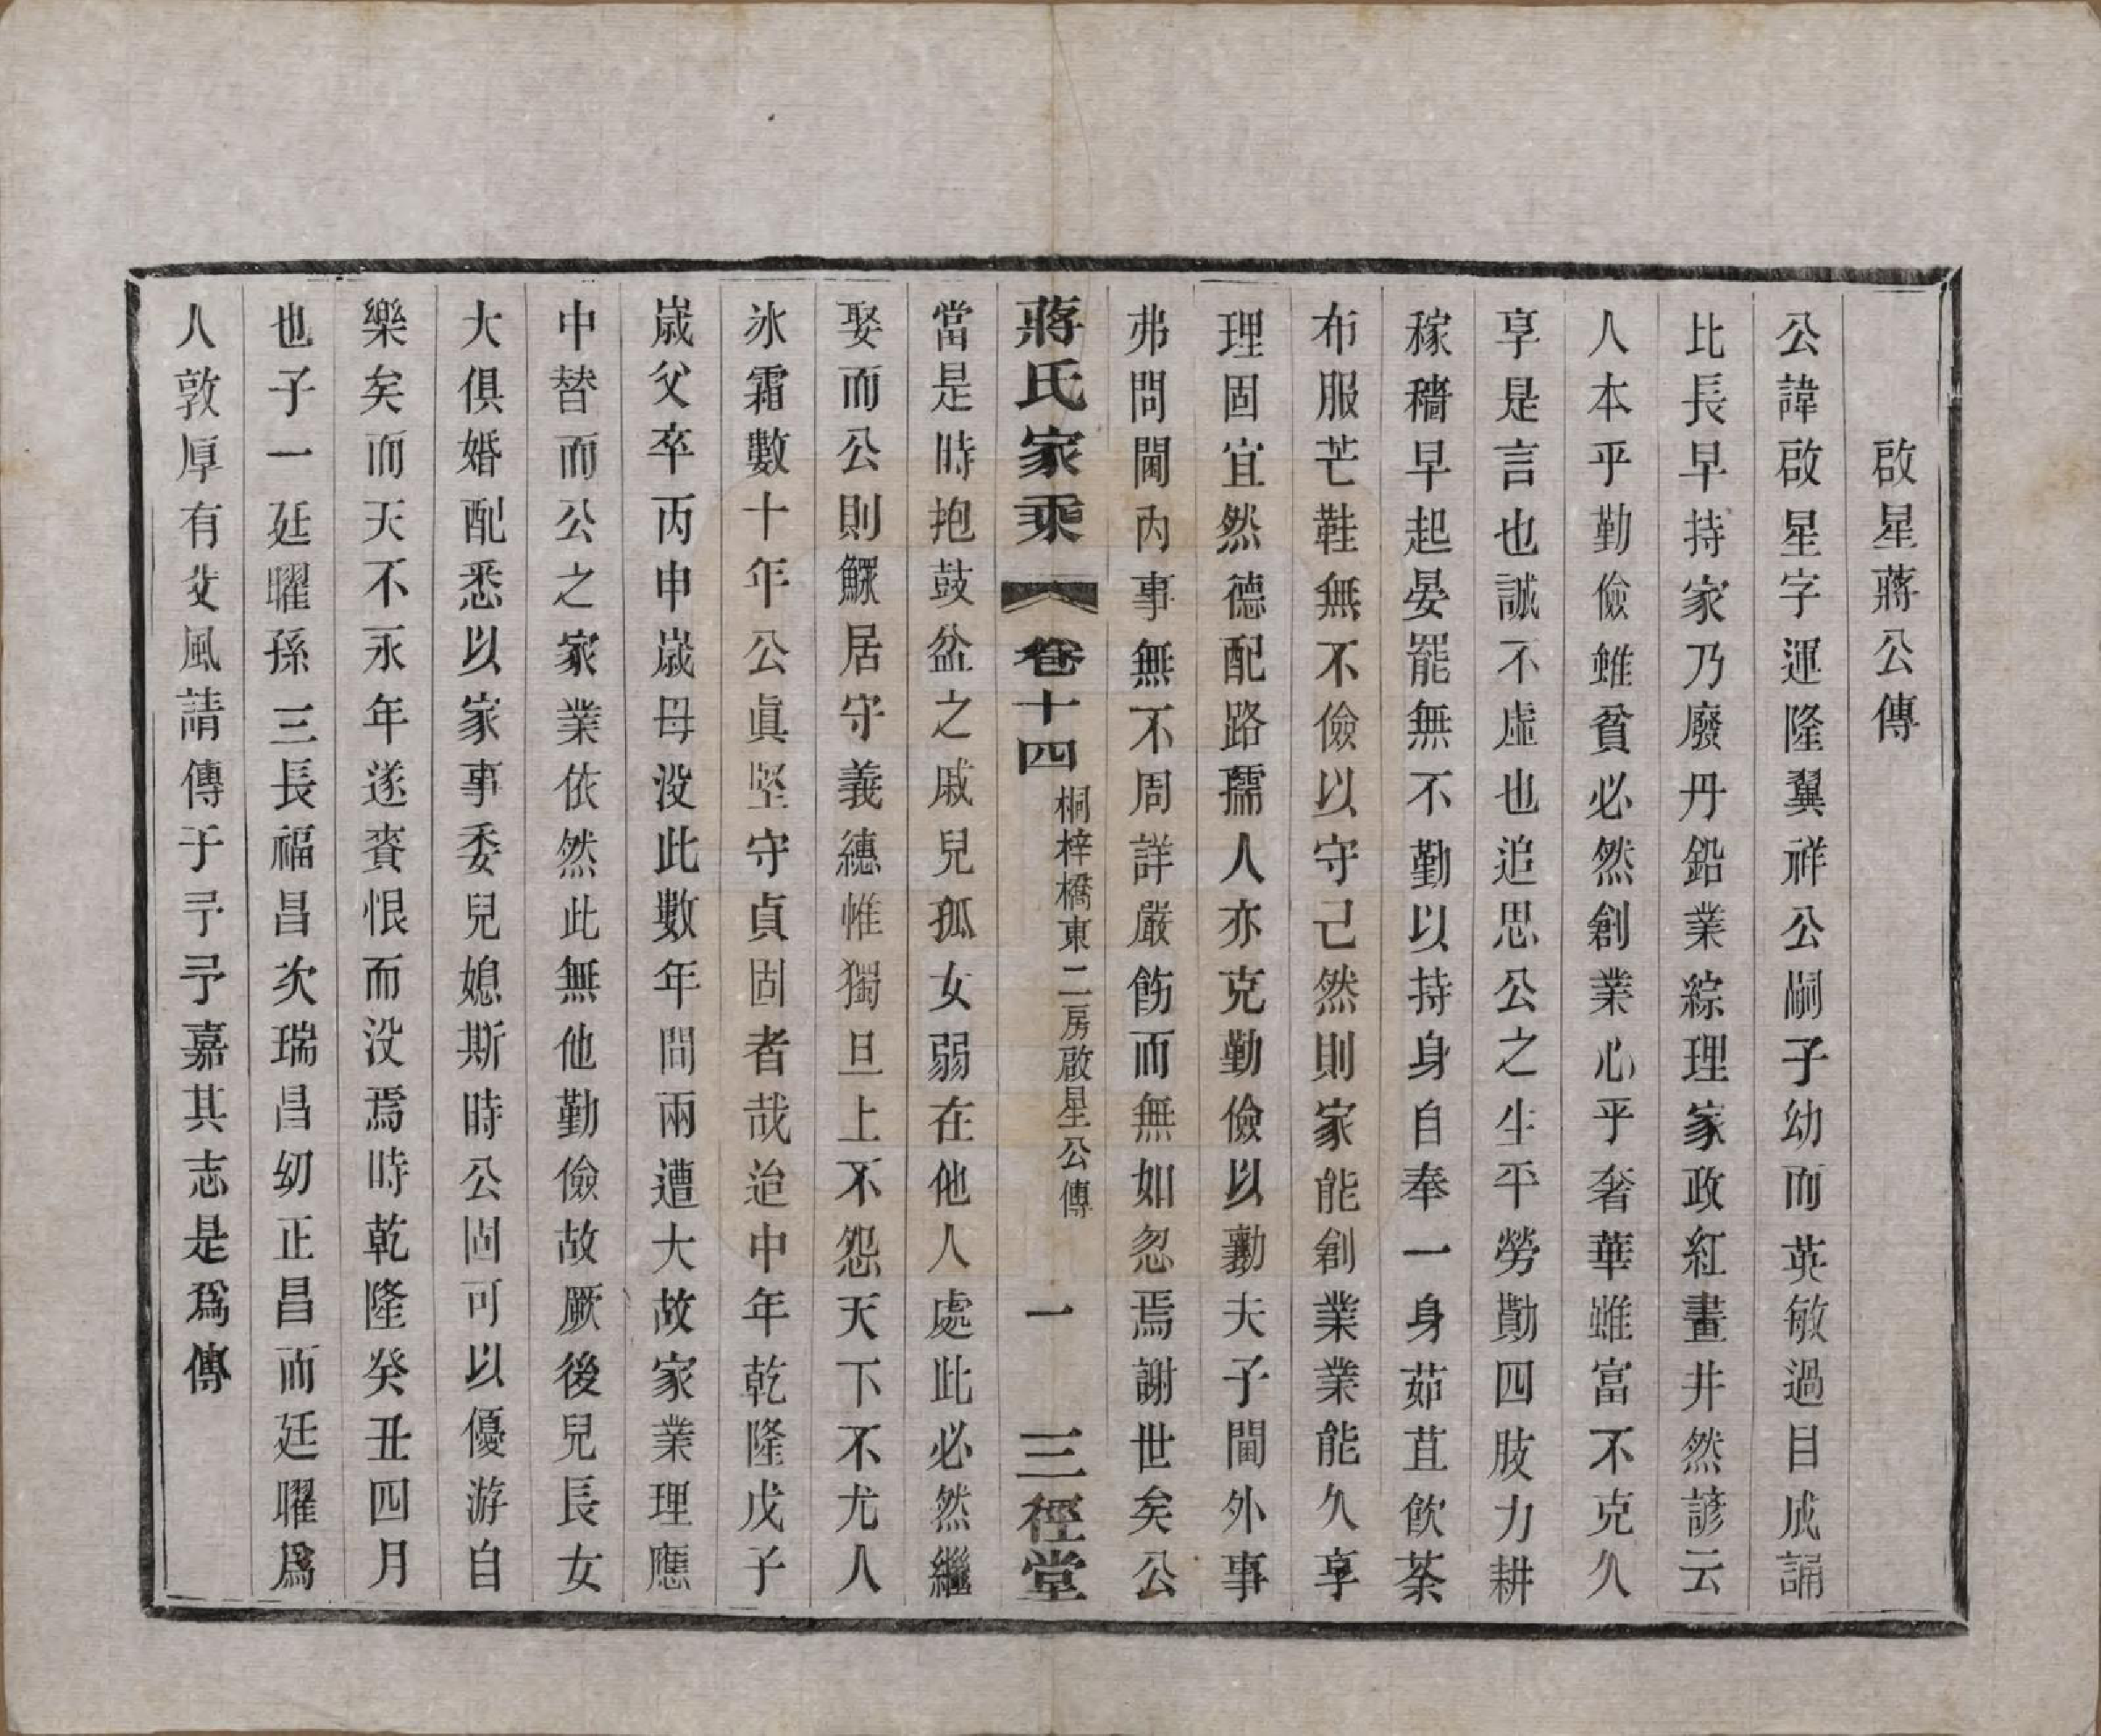 啟星蔣公傳
公諱啟星字運隆翼祥公嗣子幼而英敏過目成誦
比長早持家乃廢丹鉛業綜理家政紅畫井然諺云
人本乎勤儉雖貧必然創業心乎奢華雖富不克久
享是言也誠不虛也追思公之生平勞勩四肢力耕
稼穡早起晏罷無不勤以持身自奉一身茹苴飲茶
布服芒鞋無不儉以守己然則家能創業業能久享
理固宜然德配路孺人亦克勤儉以勷夫子閫外事
弗問閫內事無不周詳嚴飭而無如忽焉謝世矣公
蔣氏家乘 卷十四 桐梓橋東二房啟星公傳 一 三徑堂
當是時抱鼓盆之戚兒孤女弱在他人處此必然繼
娶而公則鰥居守義繐帷獨旦上不怨天下不尤人
氷霜數十年公眞堅守貞固者哉迨中年乾隆戊子
歲父卒丙申歲母没此數年間兩遭大故家業理應
中替而公之家業依然此無他勤儉故厥後兒長女
大俱婚配悉以家事委兒媳斯時公固可以優游自
樂矣而天不永年遂賫恨而没焉時乾隆癸丑四月
也子一廷曜孫三長福昌次瑞昌幼正昌而廷曜爲
人敦厚有父風請傳于予予嘉其志是爲傳